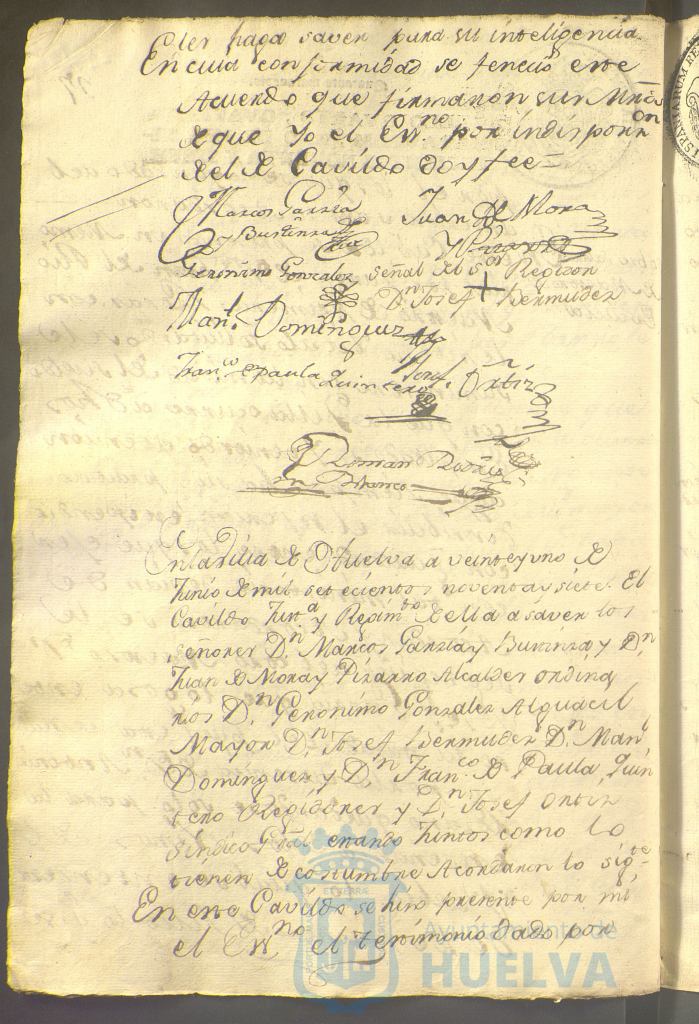 se les haga saver para su inteligencia
En cuia conformidad se fenecio este
Acuerdo que firmaron sus Mrds
de que Yo el Essno por indisposn
del de Cavildo doy fee=
Marcos Garzia
y Bustinza
Juan de Mora
y Pizarro
Geronimo Gonzalez
señal del Sor Regidor
Dn Josef + Bermudez
Manl Dominguez
Franco de Paula Quintero
Josef Ortiz
Roman Rodrig
Blanco
En la Villa de Huelva a veinte y uno de
Junio de mil setecientos noventa y siete. El
Cavildo Justa y Regimto de ella a saver los
señores Dn Marcos Garzia y Bustinza y Dn
Juan de Mora y Pizarro Alcaldes ordina
rios Dn Geronimo Gonzalez Alguacil
Mayor Dn Josef Bermudez Dn Manl
Dominguez y Dn Franco de Paula Quin
tero Regidores y Dn Josef Ortiz
Sindico Gral estando Juntos como lo
tienen de costumbre Acordaron lo sigte
En este Cavildo se hizo presente por mi
el Essno el testimonio dado por
Ayuntamiento de
HUELVA